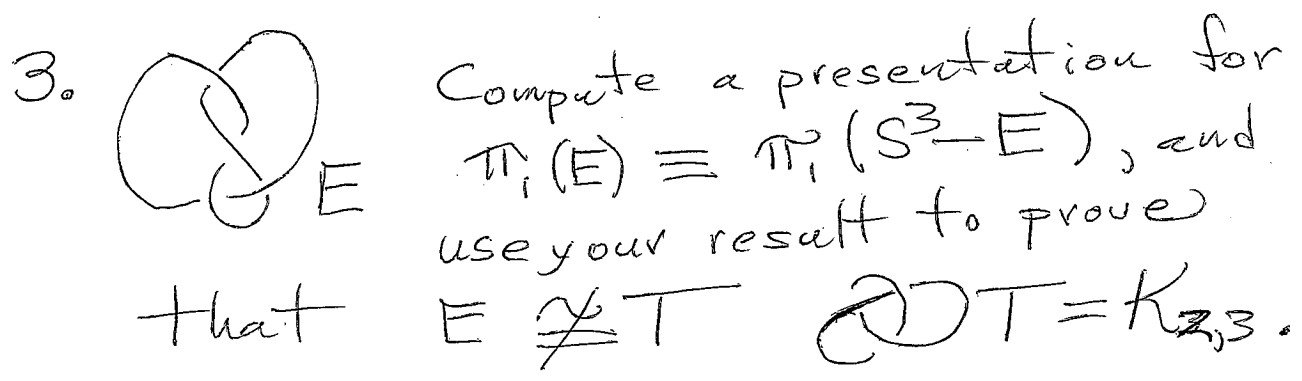 3. Compute a presentation for
E π₁(E) ≡ π₁(S³-E), and
use your result to prove
that E ≇ T T = K₂,₃.